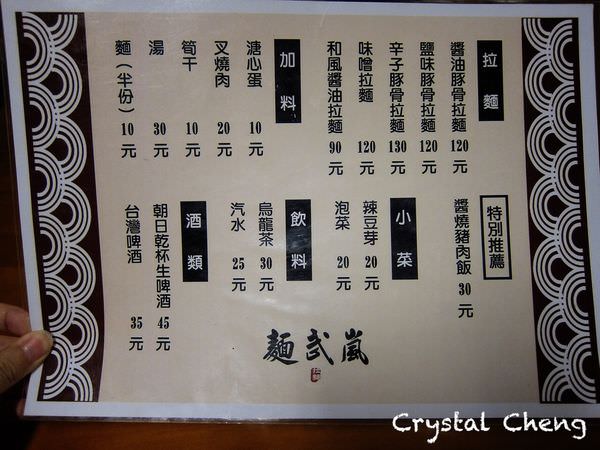 拉麵
醬油豚骨拉麵 120元
鹽味豚骨拉麵 120元
辛子豚骨拉麵 130元
味噌拉麵 120元
和風醬油拉麵 90元
加料
溏心蛋 10元
叉燒肉 20元
筍干 10元
湯 30元
麵（半份） 10元
特別推薦
醬燒豬肉飯 30元
小菜
辣豆芽 20元
泡菜 20元
飲料
烏龍茶 30元
汽水 25元
酒類
朝日乾杯生啤酒 45元
台灣啤酒 35元
嵐武麵
Crystal Cheng